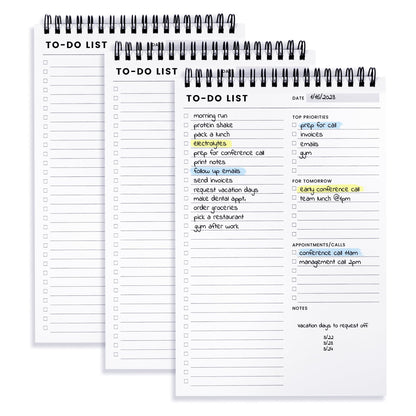 TO-DO LIST
TO-DO LIST
TO-DO LIST
DATE 1/15/2023
morning run
protein shake
pack a lunch
electrolytes
prep for conference call
print notes
follow up emails
send invoices
request vacation days
make dental appt.
order groceries
pick a restaurant
gym after work
TOP PRIORITIES
prep for call
invoices
emails
gym
FOR TOMORROW
early conference call
team lunch @1pm
APPOINTMENTS/CALLS
conference call 11am
management call 2pm
NOTES
vacation days to request off
5/22
5/23
5/24